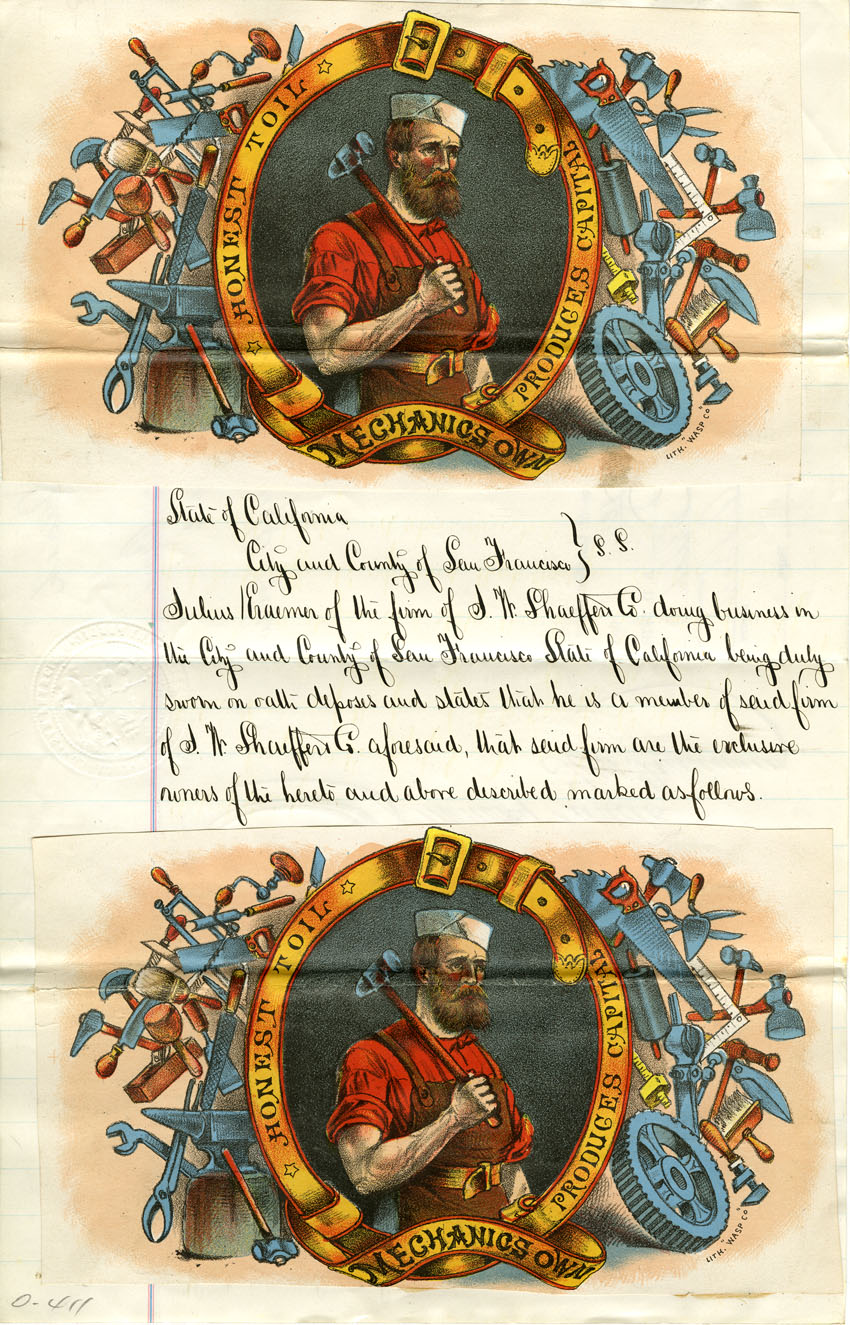 HONEST TOIL
PRODUCES CAPITAL
MECHANICS OWN
LITH. "WASP CO"
State of California
City and County of San Francisco } S. S.
Julius Kraemer of the firm of J. W. Shaeffer & Co. doing business in
the City and County of San Francisco State of California being duly
sworn on oath deposes and states that he is a member of said firm
of J. W. Shaeffer & Co. aforesaid, that said firm are the exclusive
owners of the hereto and above described marked as follows.
HONEST TOIL
PRODUCES CAPITAL
MECHANICS OWN
LITH. "WASP CO"
0-411